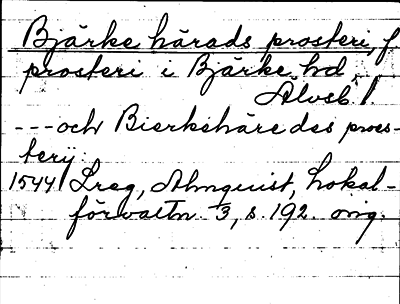 Bjärke härads prosteri, f
prosteri i Bjärke hd,
Älvsb. l.
---och Bierkehäredes proes-
terij:
1544 Lreg, Almquist, Lokal-
förvaltn. 3, s. 192. orig.